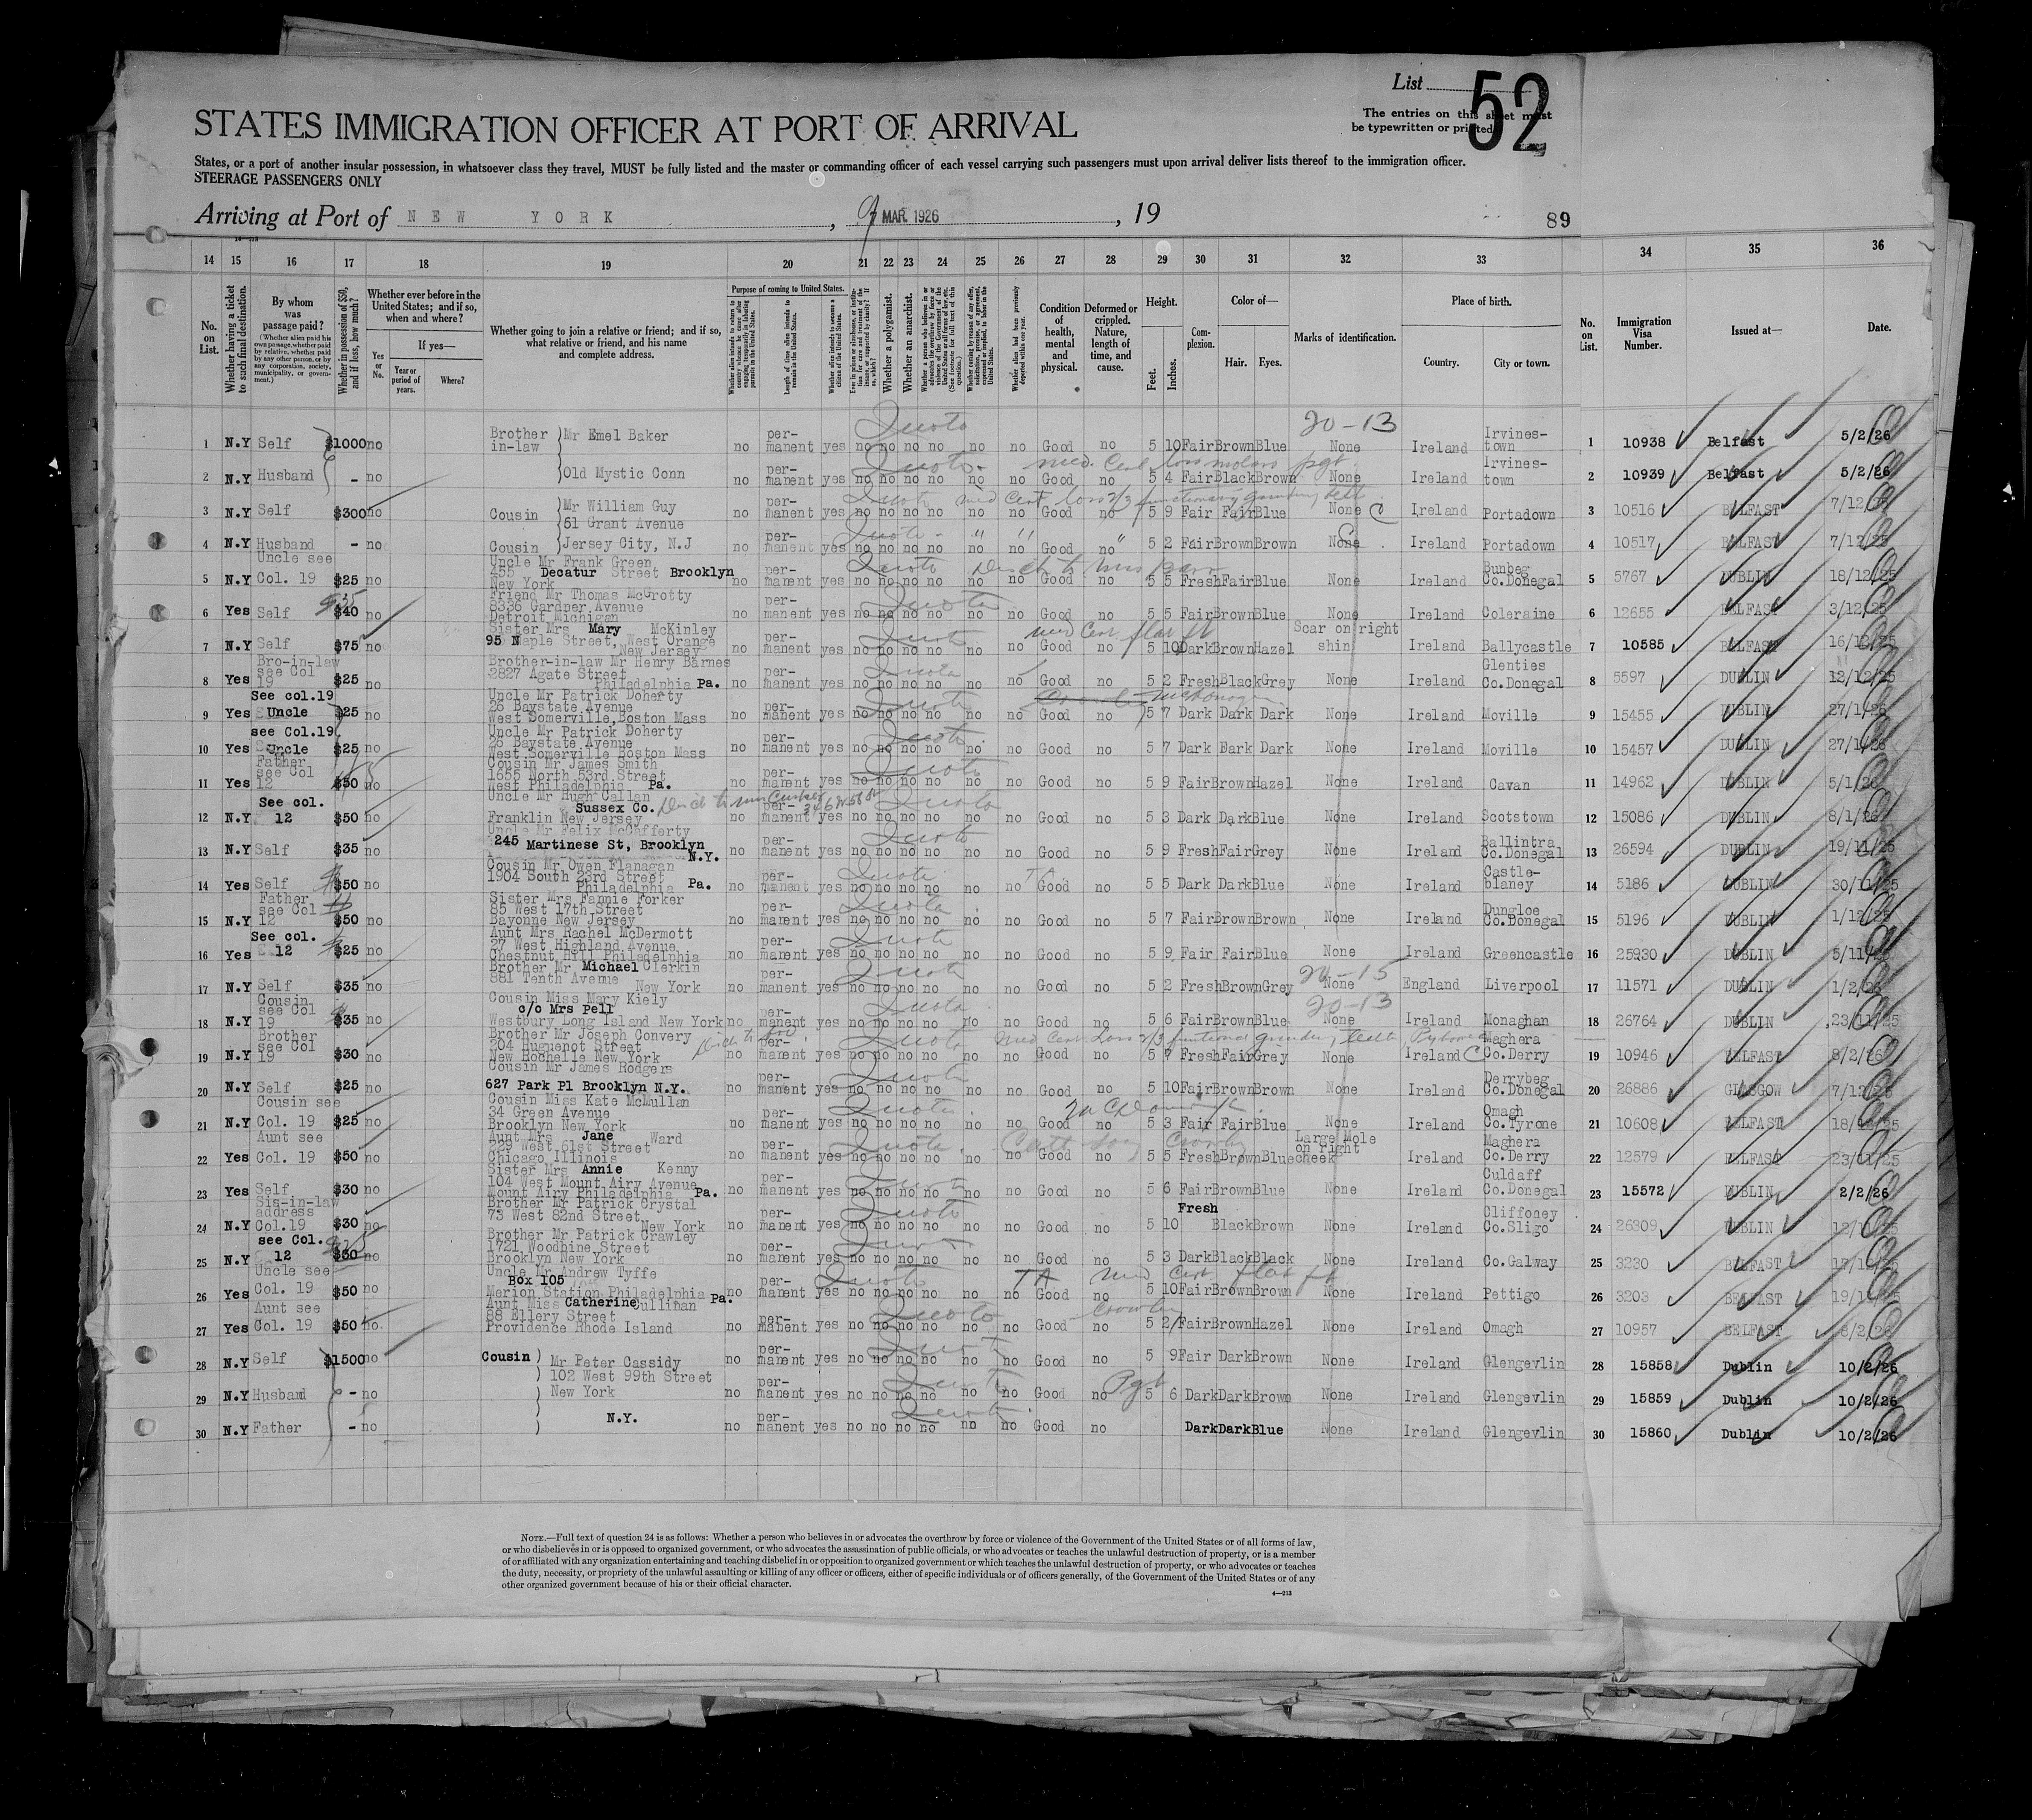 List 52
The entries on this sheet must
be typewritten or printed
STATES IMMIGRATION OFFICER AT PORT OF ARRIVAL
States, or a port of another insular possession, in whatsoever class they travel, MUST be fully listed and the master or commanding officer of each vessel carrying such passengers must upon arrival deliver lists thereof to the immigration officer.
STEERAGE PASSENGERS ONLY
Arriving at Port of NEW YORK, 9 MAR. 1926, 19
89
14 15 16 17 18 19 20 21 22 23 24 25 26 27 28 29 30 31 32 33 34 35 36
No. on List.
Whether having a ticket to such final destination.
By whom was passage paid?
(Whether alien paid his own passage, whether paid by relative, whether paid by any other person, or by any corporation, society, municipality, or government.)
Whether in possession of $50, and if less, how much?
Whether ever before in the United States; and if so, when and where?
Yes or No.
If yes—
Year or period of years.
Where?
Whether going to join a relative or friend; and if so, what relative or friend, and his name and complete address.
Purpose of coming to United States.
Length of time alien intends to remain in the United States.
Whether alien intends to become a citizen of the United States.
Whether a polygamist.
Whether an anarchist.
Whether alien had been previously deported within one year.
Condition of health, mental and physical.
Deformed or crippled. Nature, length of time, and cause.
Height.
Feet. Inches.
Complexion.
Color of—
Hair. Eyes.
Marks of identification.
Place of birth.
Country. City or town.
No. on List.
Immigration Visa Number.
Issued at—
Date.
20-13
1 N.Y Self $1000 no Brother in-law Mr Emel Baker no permanent yes no no no no no Good no 5 10 Fair Brown Blue None Ireland Irvinestown 1 10938 Belfast 5/2/26
2 N.Y Husband - no Old Mystic Conn no permanent yes no no no no no Good no 5 4 Fair Black Brown None Ireland Irvinestown 2 10939 Belfast 5/2/26
3 N.Y Self $300 no Cousin Mr William Guy 51 Grant Avenue no permanent yes no no no no no Good no 5 9 Fair Fair Blue None Ireland Portadown 3 10516 BELFAST 7/12/25
4 N.Y Husband - no Cousin Jersey City, N.J no permanent yes no no no no no Good no 5 2 Fair Brown Brown None Ireland Portadown 4 10517 BELFAST 7/12/25
5 N.Y Uncle see Col. 19 $25 no Uncle Mr Frank Green 455 Decatur Street Brooklyn New York no permanent yes no no no no no Good no 5 5 Fresh Fair Blue None Ireland Bunbeg Co.Donegal 5 5767 DUBLIN 18/12/25
6 Yes Self $40 no Friend Mr Thomas McGrotty 8336 Gardner Avenue Detroit Michigan no permanent yes no no no no no Good no 5 5 Fair Brown Blue None Ireland Coleraine 6 12655 BELFAST 3/12/25
7 N.Y Self $75 no Sister Mrs Mary McKinley 95 N Maple Street, West Orange New Jersey no permanent yes no no no no no Good no 5 10 Dark Brown Hazel Scar on right shin Ireland Ballycastle 7 10585 BELFAST 16/12/25
8 Yes Bro-in-law see Col 19 $25 no Brother-in-law Mr Henry Barnes 2827 Agate Street Philadelphia Pa. no permanent yes no no no no no Good no 5 2 Fresh Black Grey None Ireland Glenties Co.Donegal 8 5597 DUBLIN 12/12/25
9 Yes See col.19 Uncle $25 no Uncle Mr Patrick Doherty 26 Baystate Avenue West Somerville, Boston Mass no permanent yes no no no no no Good no 5 7 Dark Dark Dark None Ireland Moville 9 15455 DUBLIN 27/1/26
10 Yes see Col.19 Uncle $25 no Uncle Mr Patrick Doherty 26 Baystate Avenue West Somerville Boston Mass no permanent yes no no no no no Good no 5 7 Dark Dark Dark None Ireland Moville 10 15457 DUBLIN 27/1/26
11 Yes Father see Col 12 $50 no Cousin Mr James Smith 1655 North 53rd Street West Philadelphia Pa. no permanent yes no no no no no Good no 5 9 Fair Brown Hazel None Ireland Cavan 11 14962 DUBLIN 5/1/26
12 N.Y See col. 12 $50 no Uncle Mr Hugh Callan Sussex Co. Franklin New Jersey no permanent yes no no no no no Good no 5 3 Dark Dark Blue None Ireland Scotstown 12 15086 DUBLIN 8/1/26
13 N.Y Self $35 no Uncle Mr Felix McCafferty 245 Martinese St, Brooklyn N.Y. no permanent yes no no no no no Good no 5 9 Fresh Fair Grey None Ireland Ballintra Co.Donegal 13 26594 DUBLIN 19/11/25
14 Yes Self $50 no Cousin Mr Owen Flanagan 1904 South 23rd Street Philadelphia Pa. no permanent yes no no no no no Good no 5 5 Dark Dark Blue None Ireland Castleblaney 14 5186 DUBLIN 30/11/25
15 N.Y Father see Col 12 $50 no Sister Mrs Fannie Forker 85 West 17th Street Bayonne New Jersey no permanent yes no no no no no Good no 5 7 Fair Brown Brown None Ireland Dungloe Co.Donegal 15 5196 DUBLIN 1/12/25
16 Yes See col. 12 $25 no Aunt Mrs Rachel McDermott 27 West Highland Avenue Chestnut Hill Philadelphia no permanent yes no no no no no Good no 5 9 Fair Fair Blue None Ireland Greencastle 16 25930 DUBLIN 5/11/25
24-15
17 N.Y Self $35 no Brother Mr Michael Clerkin 881 Tenth Avenue New York no permanent yes no no no no no Good no 5 2 Fresh Brown Grey None England Liverpool 17 11571 DUBLIN 1/2/26
20-13
18 N.Y Cousin see Col 19 $35 no Cousin Miss Mary Kiely c/o Mrs Pell Westbury Long Island New York no permanent yes no no no no no Good no 5 6 Fair Brown Blue None Ireland Monaghan 18 26764 DUBLIN 23/11/25
19 N.Y Brother see Col 19 $30 no Brother Mr Joseph Convery 204 Huguenot Street New Rochelle New York no permanent yes no no no no no Good no 5 7 Fresh Fair Grey None Ireland Maghera Co.Derry 19 10946 BELFAST 8/2/26
20 N.Y Self $25 no Cousin Mr James Rodgers 627 Park Pl Brooklyn N.Y. no permanent yes no no no no no Good no 5 10 Fair Brown Brown None Ireland Derrybeg Co.Donegal 20 26886 GLASGOW 7/12/25
21 N.Y Cousin see Col. 19 $25 no Cousin Miss Kate McMullan 34 Green Avenue Brooklyn New York no permanent yes no no no no no Good no 5 3 Fair Fair Blue None Ireland Omagh Co.Tyrone 21 10608 BELFAST
22 Yes Aunt see Col. 19 $50 no Aunt Mrs Jane Ward 729 West 61st Street Chicago Illinois no permanent yes no no no no no Good no 5 5 Fresh Brown Blue Large Mole on right cheek Ireland Maghera Co.Derry 22 12579 BELFAST 23/11/25
23 Yes Self $30 no Sister Mrs Annie Kenny 104 West Mount Airy Avenue Mount Airy Philadelphia Pa. no permanent yes no no no no no Good no 5 6 Fair Brown Blue None Ireland Culdaff Co.Donegal 23 15572 DUBLIN 2/2/26
24 N.Y Sis-in-law address Col.19 $30 no Brother Mr Patrick Crystal 73 West 82nd Street New York no permanent yes no no no no no Good no 5 10 Fresh Black Brown None Ireland Cliffoney Co.Sligo 24 26309 DUBLIN
25 N.Y see Col. 12 $50 no Brother Mr Patrick Crawley 1721 Woodhine Street Brooklyn New York no permanent yes no no no no no Good no 5 3 Dark Black Black None Ireland Co.Galway 25 3230 BELFAST
26 Yes Uncle see Col. 19 $50 no Uncle Mr Andrew Tyffe Box 105 Merion Station Philadelphia Pa. no permanent yes no no no no no Good no 5 10 Fair Brown Brown None Ireland Pettigo 26 3203 BELFAST
27 Yes Aunt see Col. 19 $50 no Aunt Miss Catherine Cullinan 88 Ellery Street Providence Rhode Island no permanent yes no no no no no Good no 5 2 Fair Brown Hazel None Ireland Omagh 27 10957 BELFAST 8/2/26
28 N.Y Self $1500 no Cousin Mr Peter Cassidy no permanent yes no no no no no Good no 5 9 Fair Dark Brown None Ireland Glengevlin 28 15858 Dublin 10/2/26
29 N.Y Husband - no 102 West 99th Street New York no permanent yes no no no no no Good no 5 6 Dark Dark Brown None Ireland Glengevlin 29 15859 Dublin 10/2/26
30 N.Y Father - no N.Y. no permanent yes no no no no no Good no Dark Dark Blue None Ireland Glengevlin 30 15860 Dublin 10/2/26
NOTE.—Full text of question 24 is as follows: Whether a person who believes in or advocates the overthrow by force or violence of the Government of the United States or of all forms of law,
or who disbelieves in or is opposed to organized government, or who advocates the assassination of public officials, or who advocates or teaches the unlawful destruction of property, or is a member
of or affiliated with any organization entertaining and teaching disbelief in or opposition to organized government or which teaches the unlawful destruction of property, or who advocates or teaches
the duty, necessity, or propriety of the unlawful assaulting or killing of any officer or officers, either of specific individuals or of officers generally, of the Government of the United States or of any
other organized government because of his or their official character.
4—213